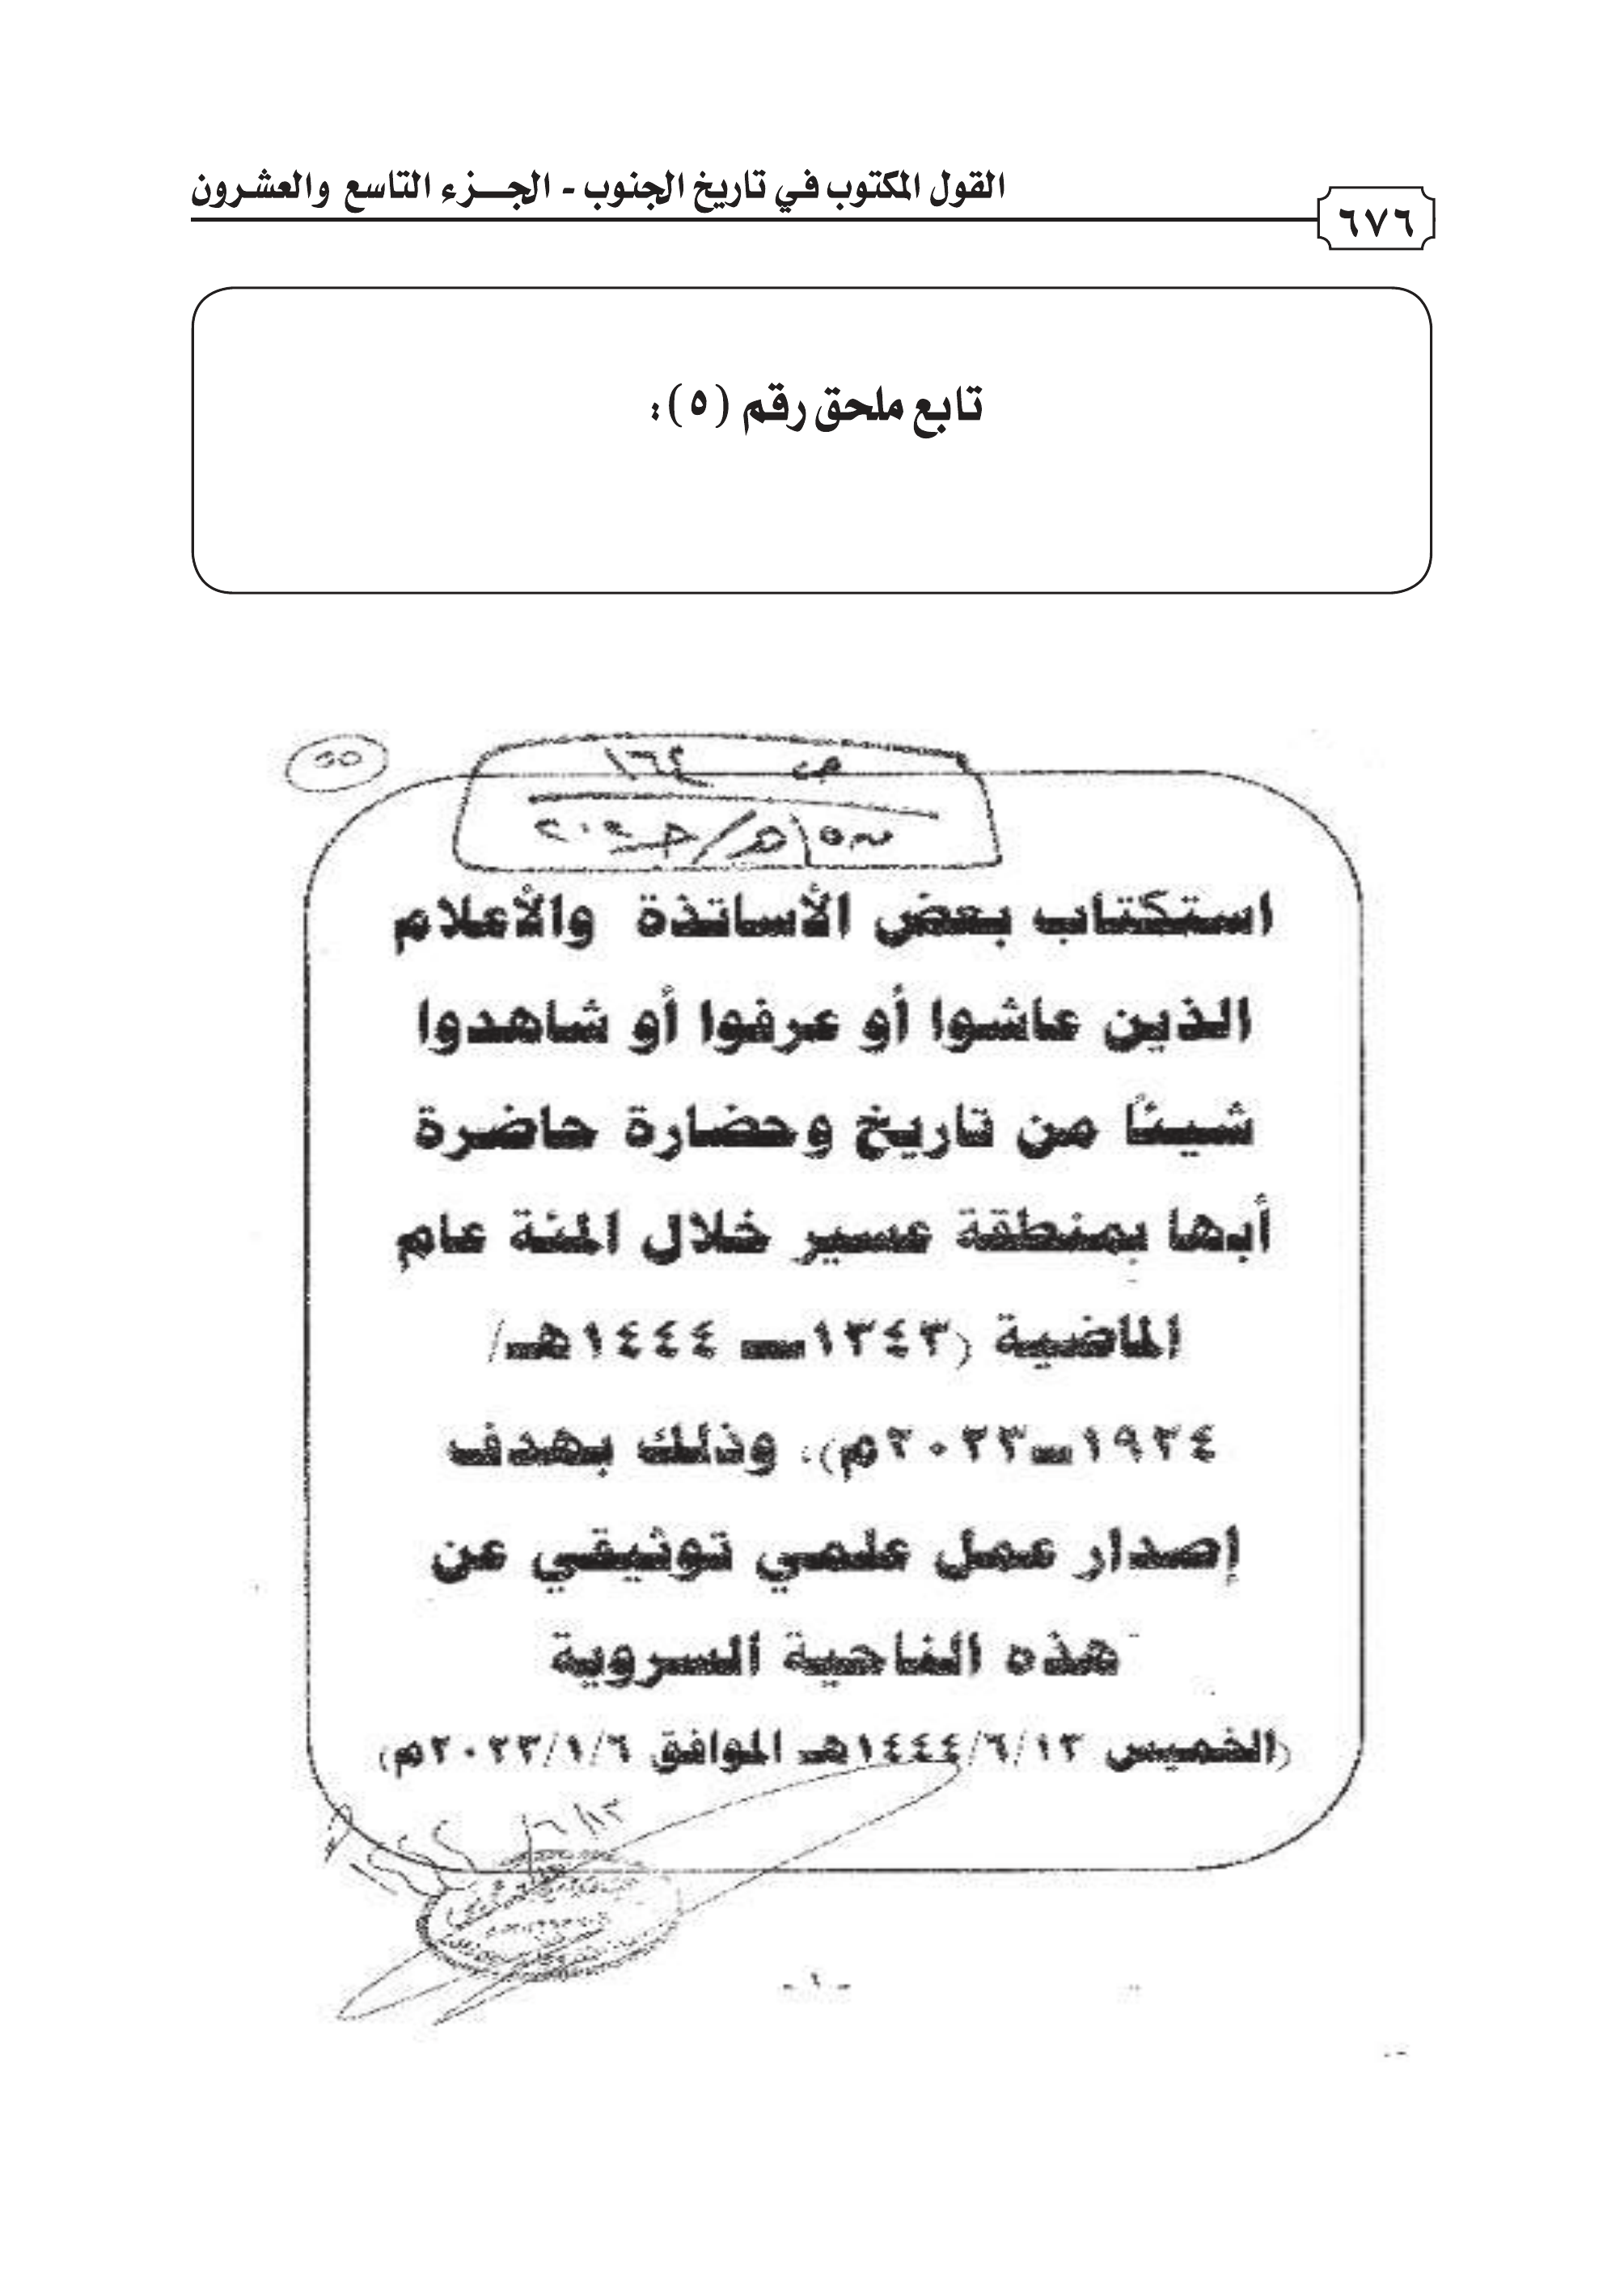 القول المكتوب في تاريخ الجنوب - الجـــزء التاسع والعشرون
٦٧٦
تابع ملحق رقم (٥):
ص ١٦٤
استكتاب بعض الأساتذة والأعلام
الذين عاشوا أو عرفوا أو شاهدوا
شيئاً من تاريخ وحضارة حاضرة
أبها بمنطقة عسير خلال المئة عام
الماضية (١٣٤٣ـــ ١٤٤٤هـ/
١٩٢٤ـ٢٠٢٣م)، وذلك بهدف
إصدار عمل علمي توثيقي عن
هذه الناحية السروية
(الخميس ١٤٤٤/٦/١٣هـ الموافق ٢٠٢٣/١/٦م)
١٣/٦/
- ١ -